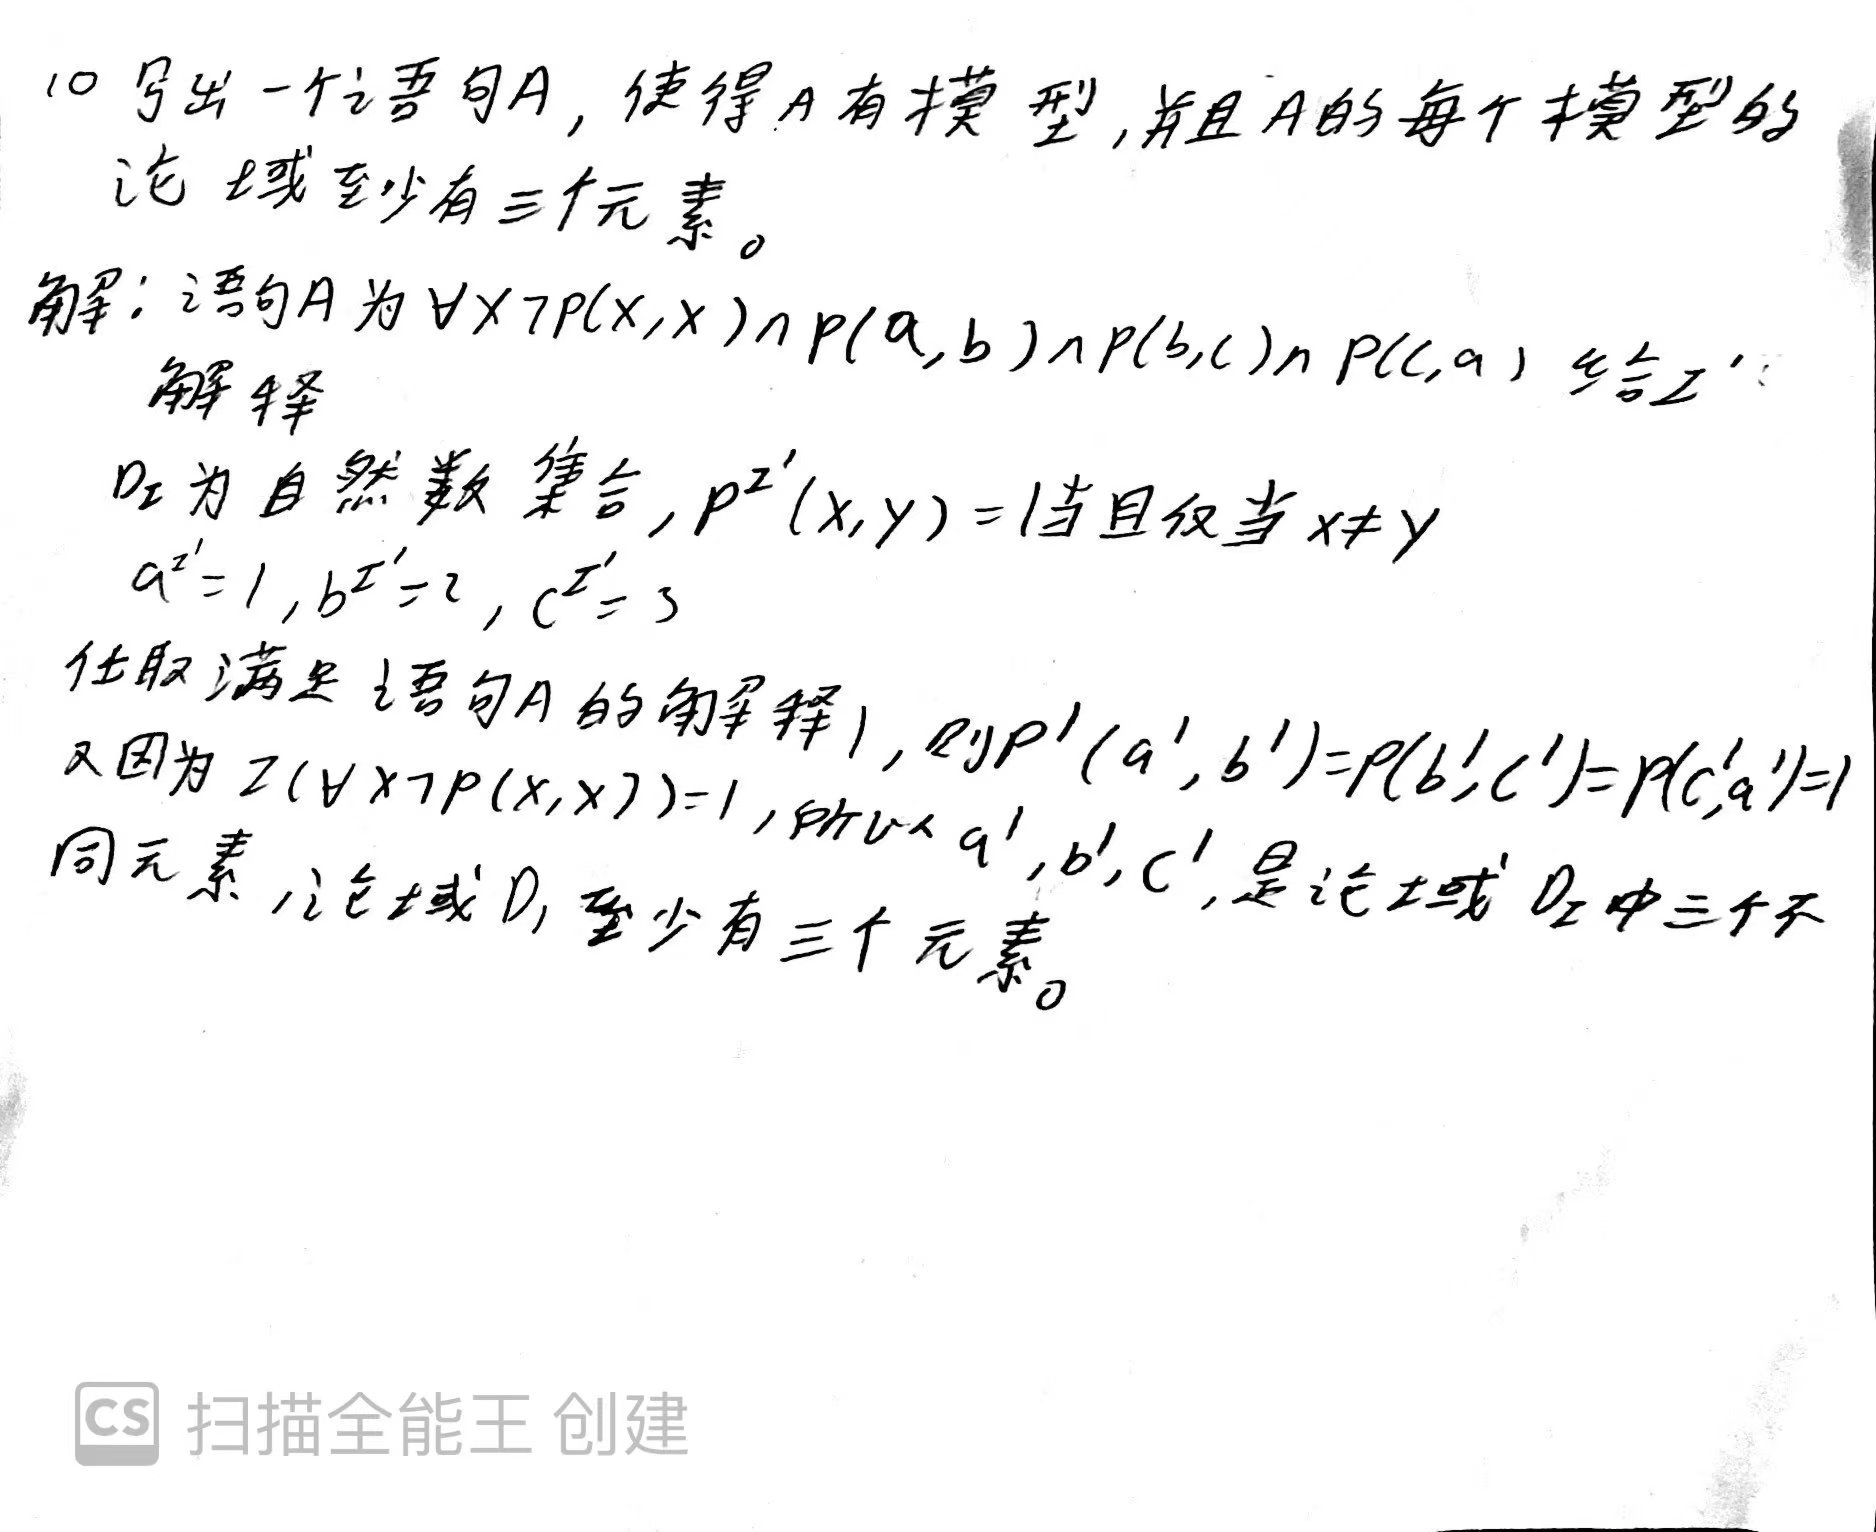 10 写出一个语句A, 使得A有模型,并且A的每个模型的
论域至少有三个元素。
解: 语句A为∀x¬P(x,x)∧P(a,b)∧P(b,c)∧P(c,a) 给I':
解释
D_I为自然数集合, P^I'(x,y)=1当且仅当x≠y
a^I'=1, b^I'=2, c^I'=3
任取满足语句A的解释1, 则P'(a',b')=P(b',c')=P(c',a')=1
又因为I(∀x¬P(x,x))=1, 所以a',b',c',是论域D_I中三个不
同元素,论域D1至少有三个元素。
CS 扫描全能王 创建